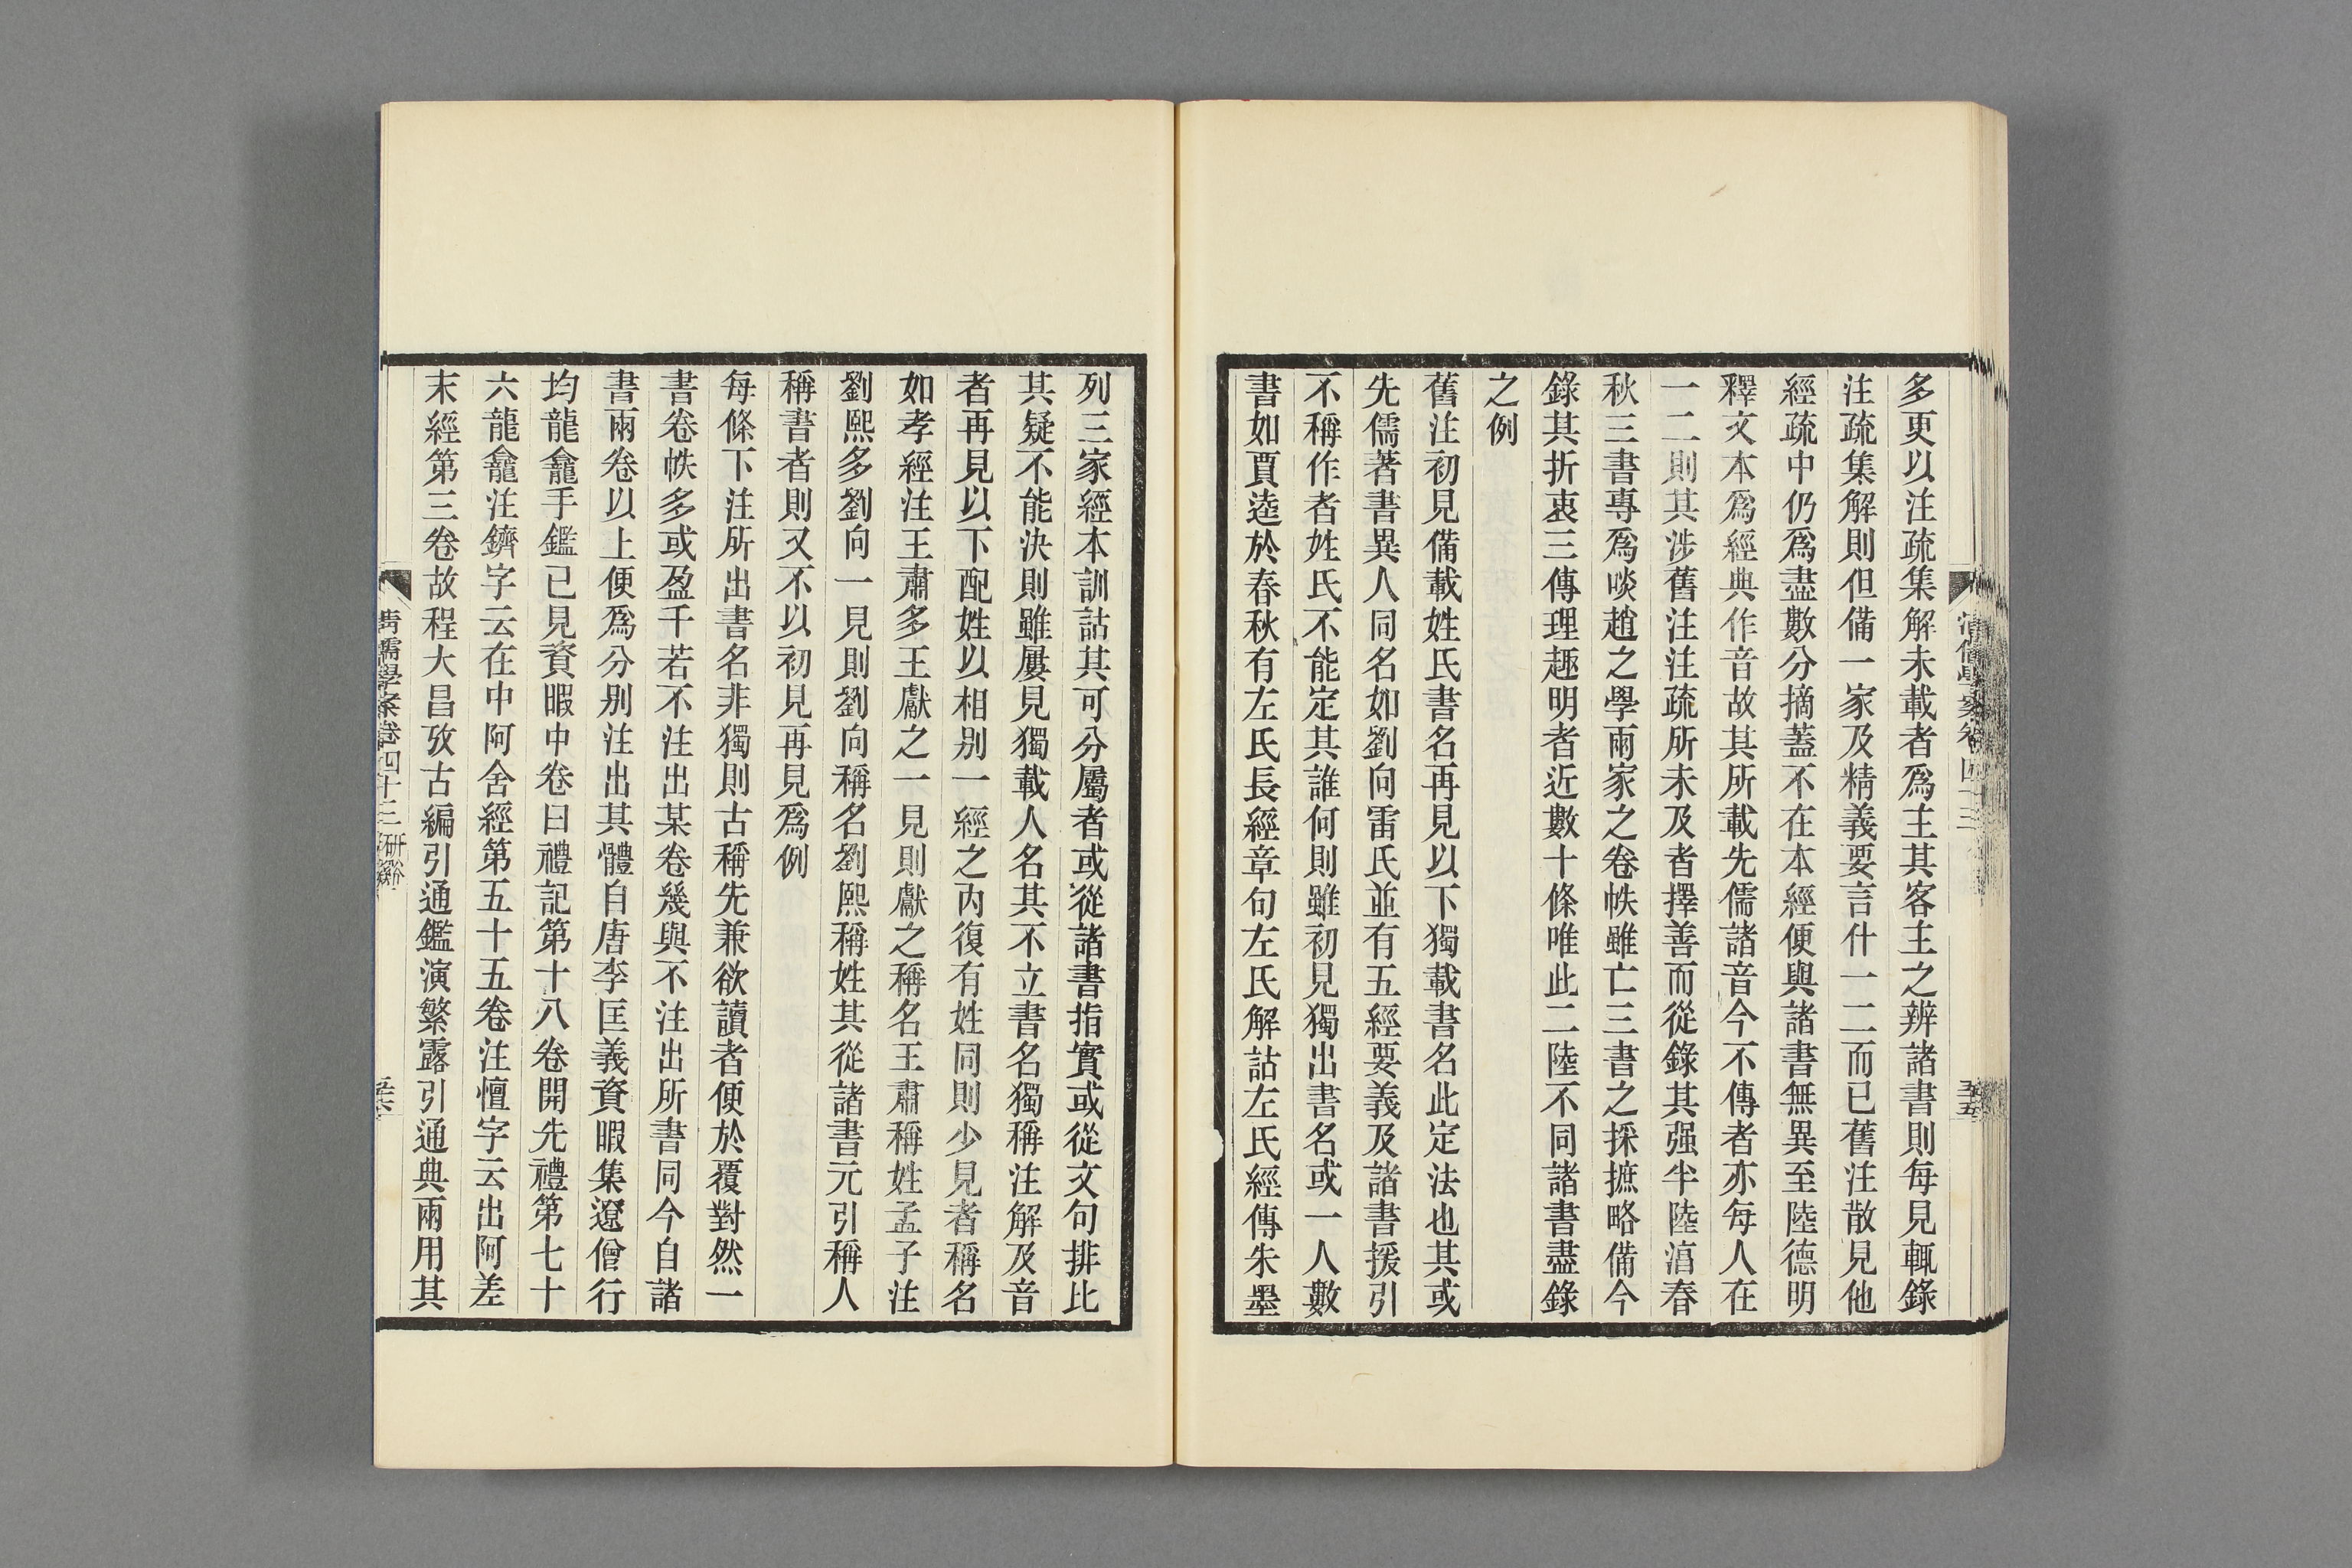 多更以注疏集解未載者爲主其客主之辨諸書則每見輒錄
注疏集解則但備一家及精義要言什一二而已舊注散見他
經疏中仍爲盡數分摘蓋不在本經便與諸書無異至陸德明
釋文本爲經典作音故其所載先儒諸音今不傳者亦每人在
一二則其涉舊注注疏所未及者擇善而從錄其强半陸淳春
秋三書專爲啖趙之學兩家之卷帙雖亡三書之採摭略備今
錄其折衷三傳理趣明者近數十條唯此二陸不同諸書盡錄
之例
舊注初見備載姓氏書名再見以下獨載書名此定法也其或
先儒著書異人同名如劉向雷氏並有五經要義及諸書援引
不稱作者姓氏不能定其誰何則雖初見獨出書名或一人數
書如賈逵於春秋有左氏長經章句左氏解詁左氏經傳朱墨
列三家經本訓詁其可分屬者或從諸書指實或從文句排比
其疑不能決則雖屢見獨載人名其不立書名獨稱注解及音
者再見以下配姓以相別一經之內復有姓同則少見者稱名
如孝經注王肅多王獻之一見則獻之稱名王肅稱姓孟子注
劉熙多劉向一見則劉向稱名劉熙稱姓其從諸書元引稱人
稱書者則又不以初見再見爲例
每條下注所出書名非獨則古稱先兼欲讀者便於覆對然一
書卷帙多或盈千若不注出某卷幾與不注出所書同今自諸
書兩卷以上便爲分別注出其體自唐李匡義資暇集遼僧行
均龍龕手鑑已見資暇中卷曰禮記第十八卷開先禮第七十
六龍龕注鑇字云在中阿含經第五十五卷注憻字云出阿差
末經第三卷故程大昌攷古編引通鑑演繁露引通典兩用其
清儒學案卷四十三
五五
清儒學案卷四十三 研谿
五六